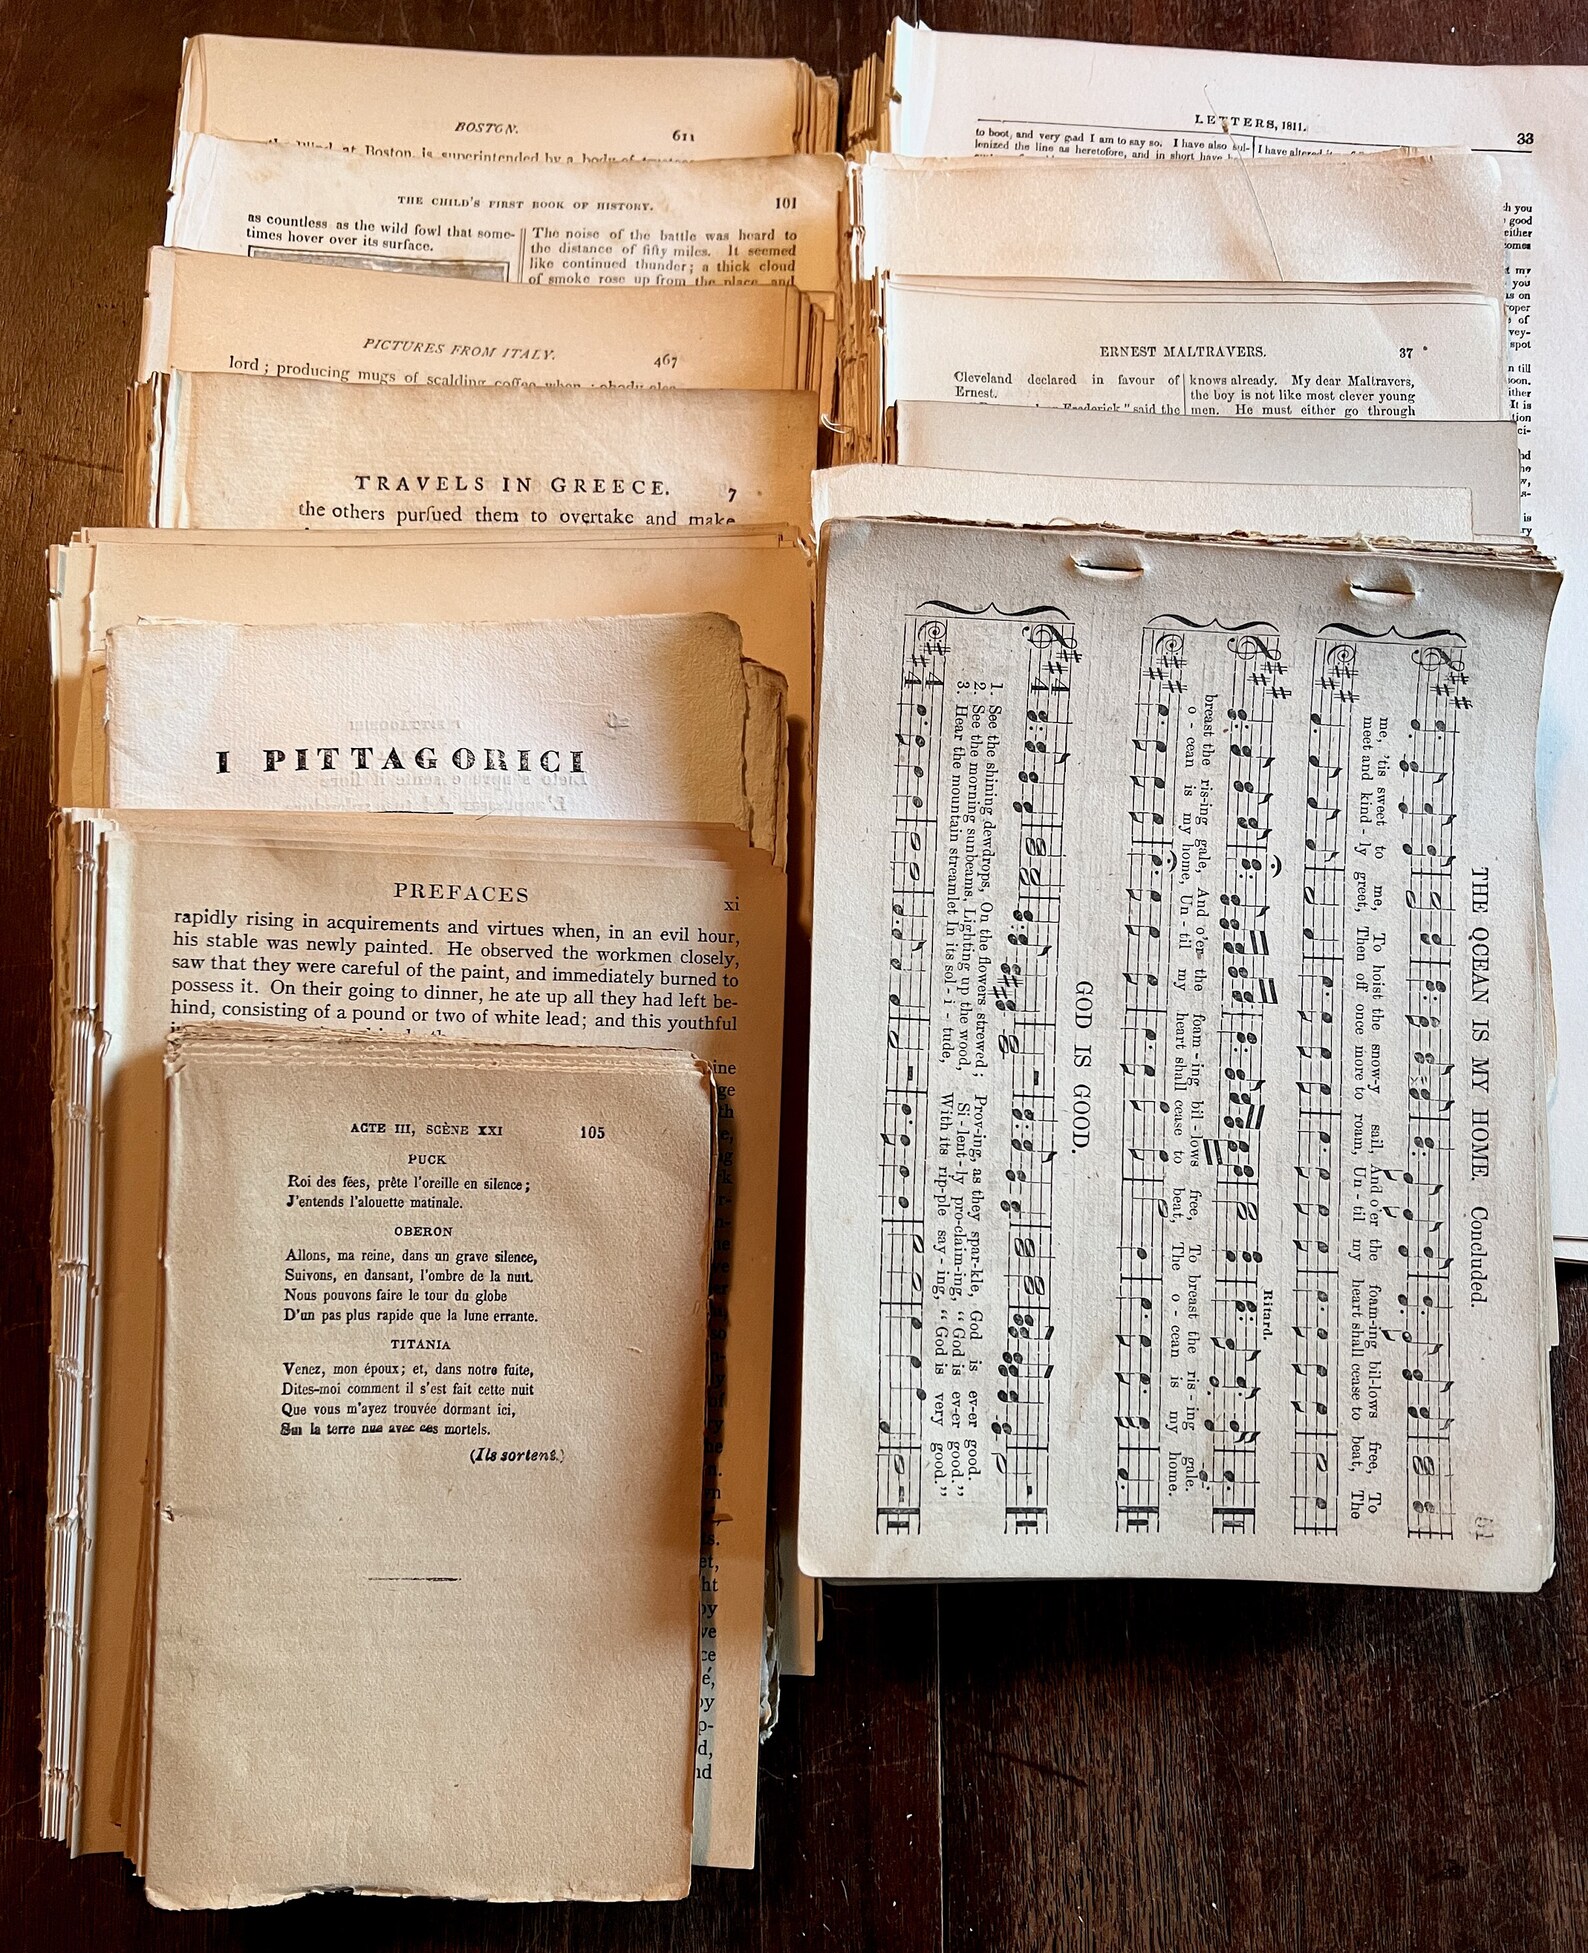 BOSTON.
611
at Boston, is superintended by a body of
THE CHILD'S FIRST BOOK OF HISTORY.
101
as countless as the wild fowl that some-
times hover over its surface.
The noise of the battle was heard to
the distance of fifty miles. It seemed
like continued thunder; a thick cloud
of smoke rose up from the place, and
PICTURES FROM ITALY.
467
lord ; producing mugs of scalding coffee when
TRAVELS IN GREECE.
7
the others purſued them to overtake and make
I PITTAGORICI
PREFACES
xi
rapidly rising in acquirements and virtues when, in an evil hour,
his stable was newly painted. He observed the workmen closely,
saw that they were careful of the paint, and immediately burned to
possess it. On their going to dinner, he ate up all they had left be-
hind, consisting of a pound or two of white lead; and this youthful
ACTE III, SCÈNE XXI
105
PUCK
Roi des fées, prête l'oreille en silence ;
J'entends l'alouette matinale.
OBERON
Allons, ma reine, dans un grave silence,
Suivons, en dansant, l'ombre de la nuit.
Nous pouvons faire le tour du globe
D'un pas plus rapide que la lune errante.
TITANIA
Venez, mon époux; et, dans notre fuite,
Dites-moi comment il s'est fait cette nuit
Que vous m'ayez trouvée dormant ici,
Sur la terre nue avec ces mortels.
(Ils sortent.)
LETTERS, 1811.
33
to boot, and very glad I am to say so. I have also sul-
lenized the line as heretofore, and in short have
I have altered
ERNEST MALTRAVERS.
37
Cleveland declared in favour of
Ernest.
Frederick" said the
knows already. My dear Maltravers,
the boy is not like most clever young
men. He must either go through
THE OCEAN IS MY HOME. Concluded.
51
me, 'tis sweet to me, To hoist the snow-y sail, And o'er the foam-ing bil-lows free, To
meet and kind - ly greet, Then off once more to roam, Un - til my heart shall cease to beat, The
Ritard.
breast the ris-ing gale, And o'er the foam - ing bil - lows free, To breast the ris - ing gale.
o - cean is my home, Un - til my heart shall cease to beat, The o - cean is my home.
GOD IS GOOD.
1. See the shining dewdrops, On the flowers strewed ; Prov-ing, as they spar-kle, God is ev-er good.
2. See the morning sunbeams, Lighting up the wood, Si - lent - ly pro-claim-ing, "God is ev-er good."
3. Hear the mountain streamlet In its sol - i - tude, With its rip-ple say - ing, "God is very good."